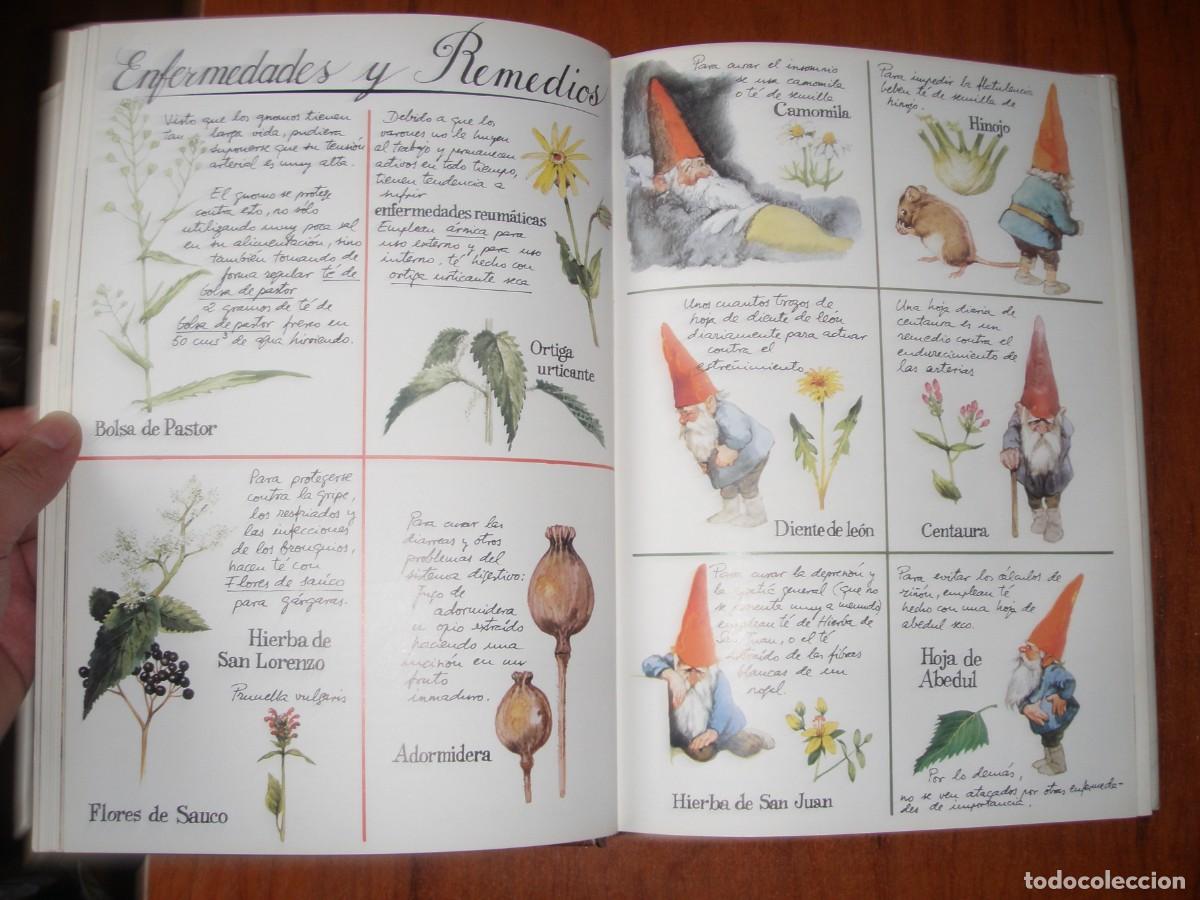 Enfermedades y Remedios
Visto que los gnomos tienen
tan larga vida, pudiera
suponerse que su tensión
arterial es muy alta.
El gnomo se protege
contra esto, no sólo
utilizando muy poca sal
en su alimentación, sino
también tomando de
forma regular té de
bolsa de pastor
2 gramos de té de
bolsa de pastor fresco en
50 cms³ de agua hirviendo.
Bolsa de Pastor
Debido a que los
varones no le huyen
al trabajo y permanecen
activos en todo tiempo,
tienen tendencia a
sufrir
enfermedades reumáticas
Emplean árnica para
uso externo y para uso
interno, té hecho con
ortiga urticante seca
Ortiga
urticante
Para protegerse
contra la gripe,
los resfriados y
las infecciones
de los bronquios,
hacen té con
Flores de saúco
para gárgaras.
Hierba de
San Lorenzo
Prunella vulgaris
Flores de Sauco
Para curar las
diarreas y otros
problemas del
sistema digestivo:
Jugo de
adormidera
u opio extraído
haciendo una
incisión en un
fruto
inmaduro.
Adormidera
Para curar el insomnio
se usa camomila
o té de semilla
Camomila
Para impedir la flatulencia
beben té de semilla de
hinojo.
Hinojo
Unos cuantos trozos de
hoja de diente de león
diariamente para actuar
contra el
estreñimiento
Diente de león
Una hoja diaria de
centaura es un
remedio contra el
endurecimiento de
las arterias
Centaura
Para curar la depresión y
la apatía general (que no
se presente muy a menudo)
emplean té de Hierba de
San Juan, o el té
extraído de las fibras
blancas de un
Hierba de San Juan
Para evitar los cálculos de
riñón, emplean té
hecho con una hoja de
abedul seco.
Hoja de
Abedul
Por lo demás,
no se ven atacados por otras enfermeda-
des de importancia.
todocoleccion